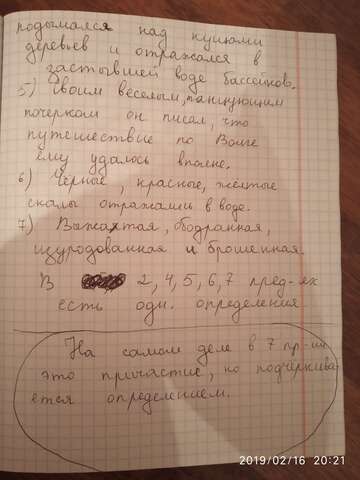 подымался над купами
деревьев и отражался в
застывшей воде бассейнов.
5) Своим веселым, танцующим
почерком он писал, что
путешествие по Волге
ему удалось вполне.
6) Чёрные, красные, желтые
скалы отражались в воде.
7) Выжатая, ободранная,
изуродованная и брошенная.
В 2, 4, 5, 6, 7 пред-ях
есть одн. определения
На самом деле в 7 пр-ии
это причастие, но подчёркива-
ется определением.
2019/02/16 20:21